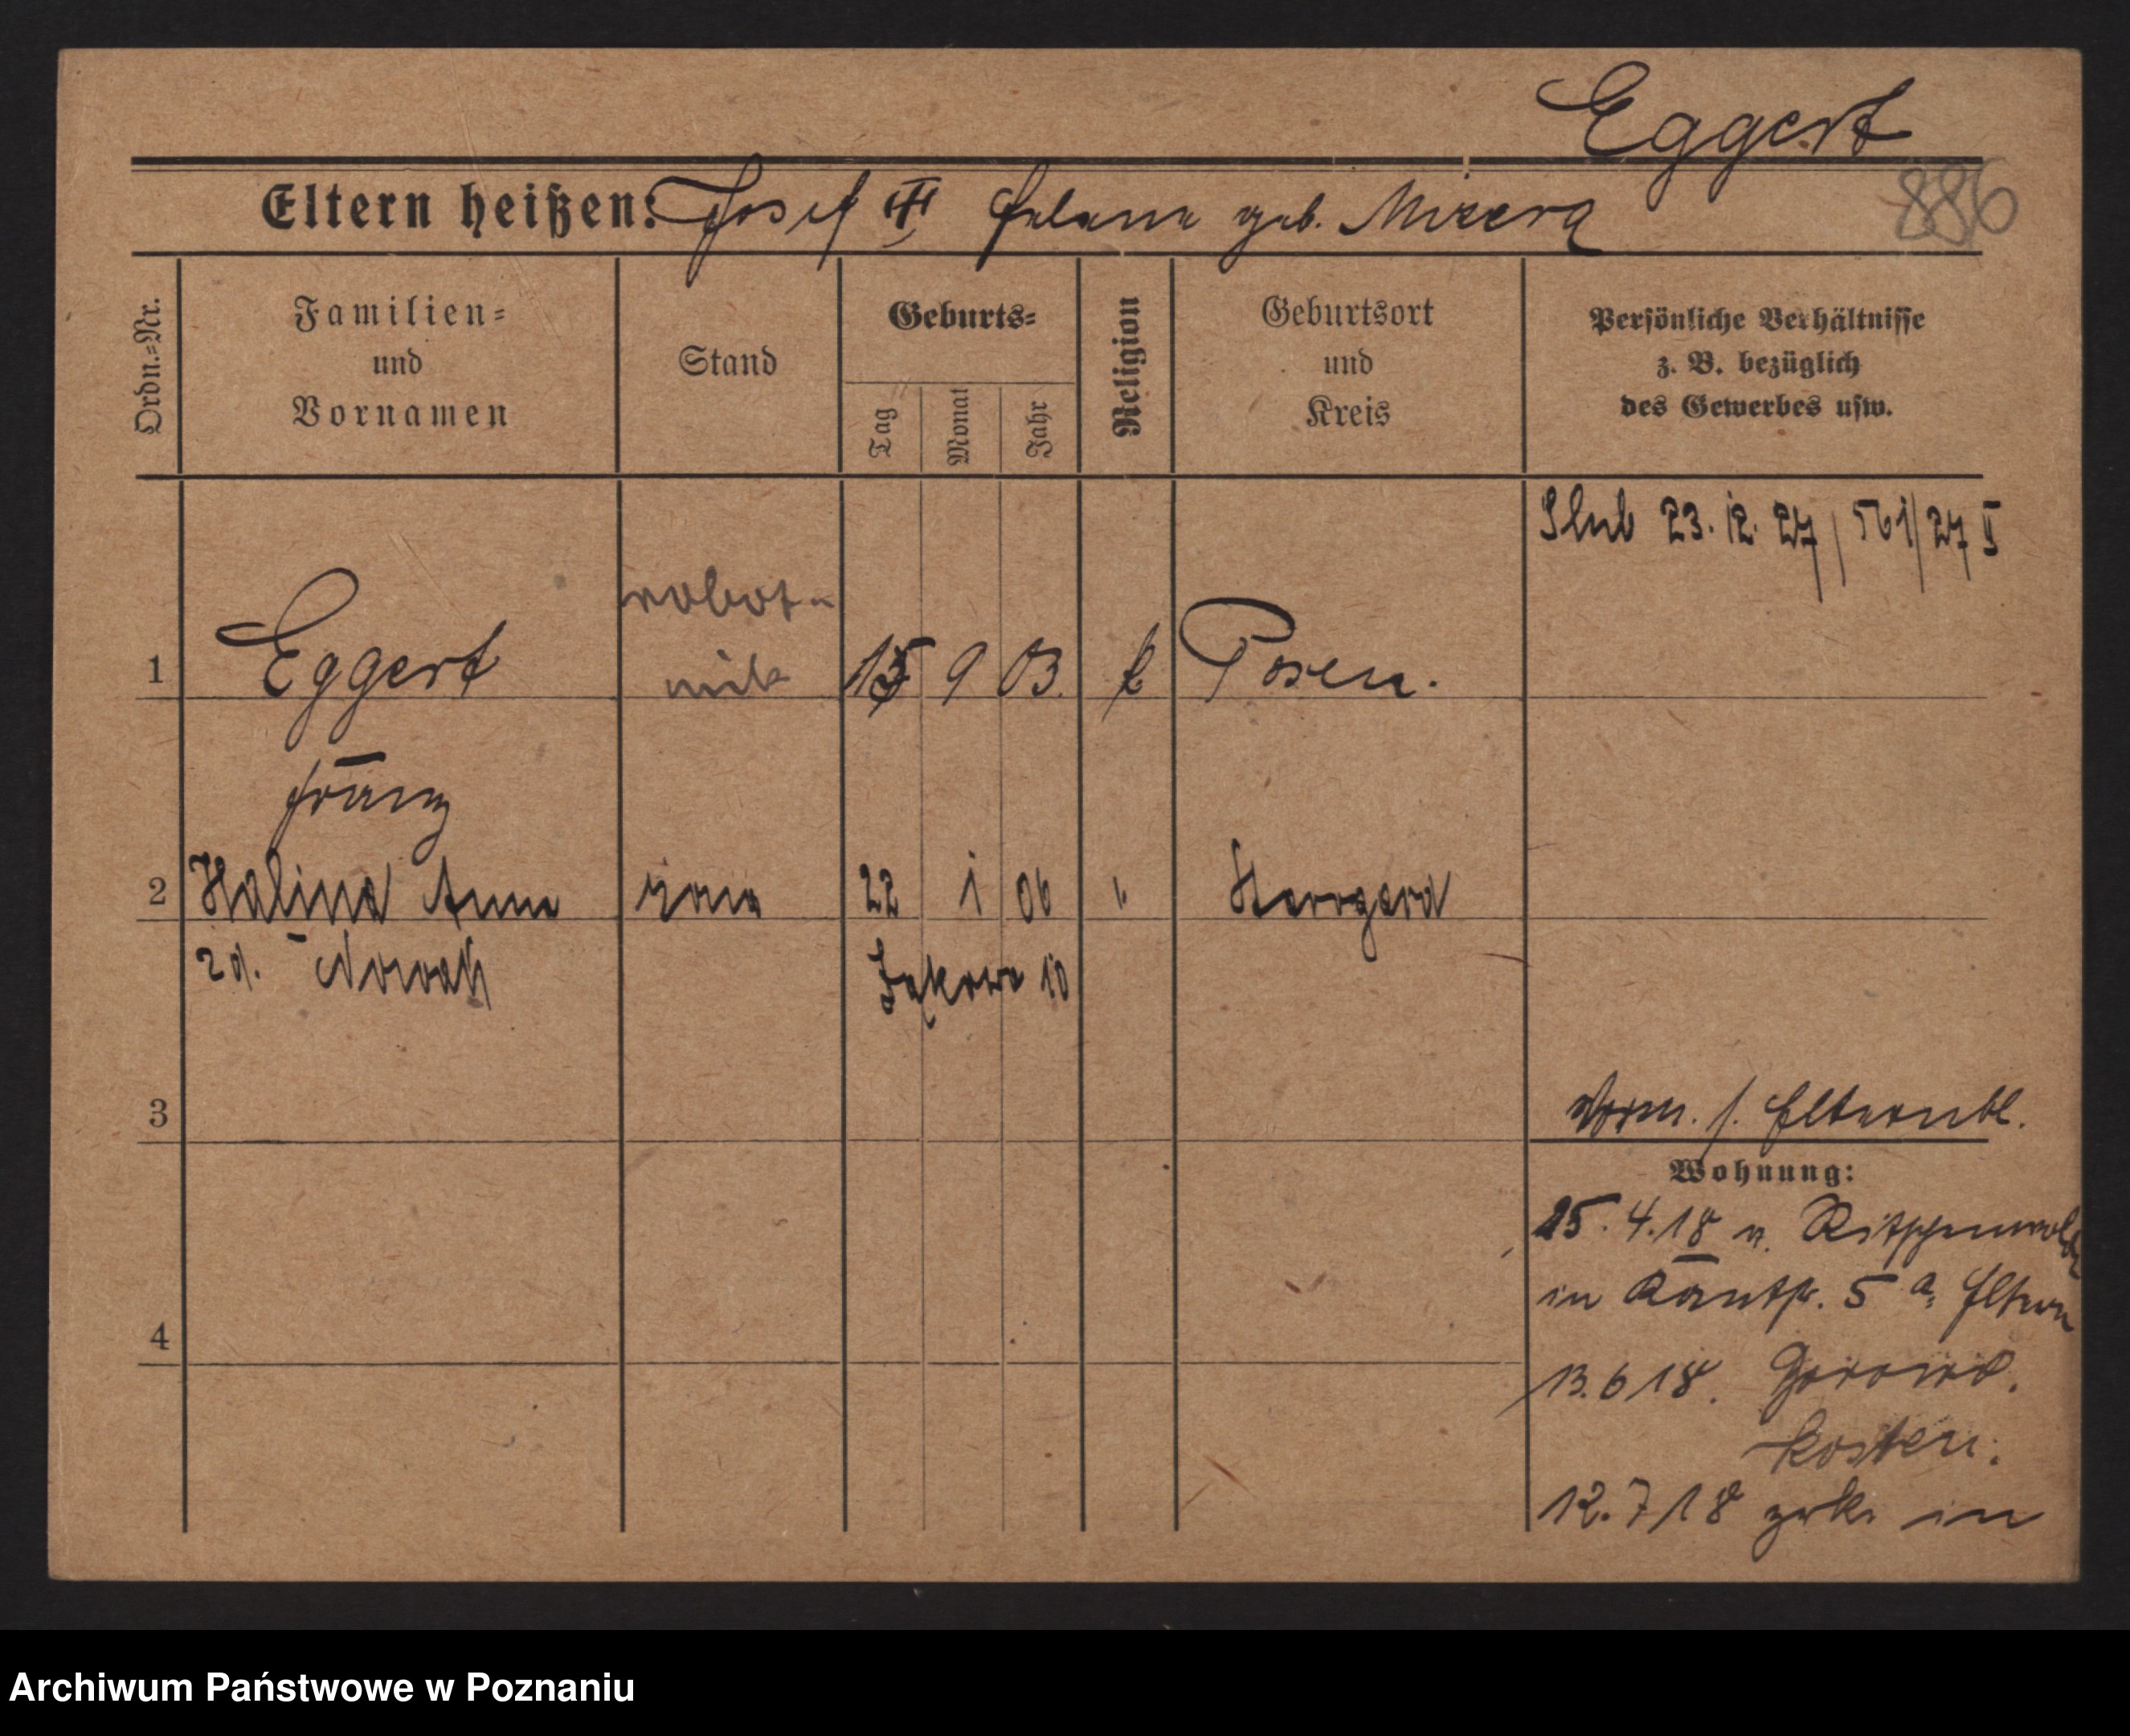 Eggert
Eltern heißen: Josef III Helene geb. Mizera
886
Ordn.=Nr.
Familien=
und
Vornamen
Stand
Geburts=
Tag
Monat
Jahr
Religion
Geburtsort
und
Kreis
Persönliche Verhältnisse
z. B. bezüglich
des Gewerbes usw.
Slub 23. 12. 27 / 561/27 II
robot-
nik
1 Eggert 15 9 03. k Posen.
Franz
2 Halina Anna żona 22 1 06 "
zd. Nowak
10
3
Vorm. s. Elternbl.
Wohnung:
25. 4. 18 v. Ritschenwalde
in Kantstr. 5 a, Eltern
4
13. 6 18.
Kosten.
12. 7 18 zrk. in
Archiwum Państwowe w Poznaniu